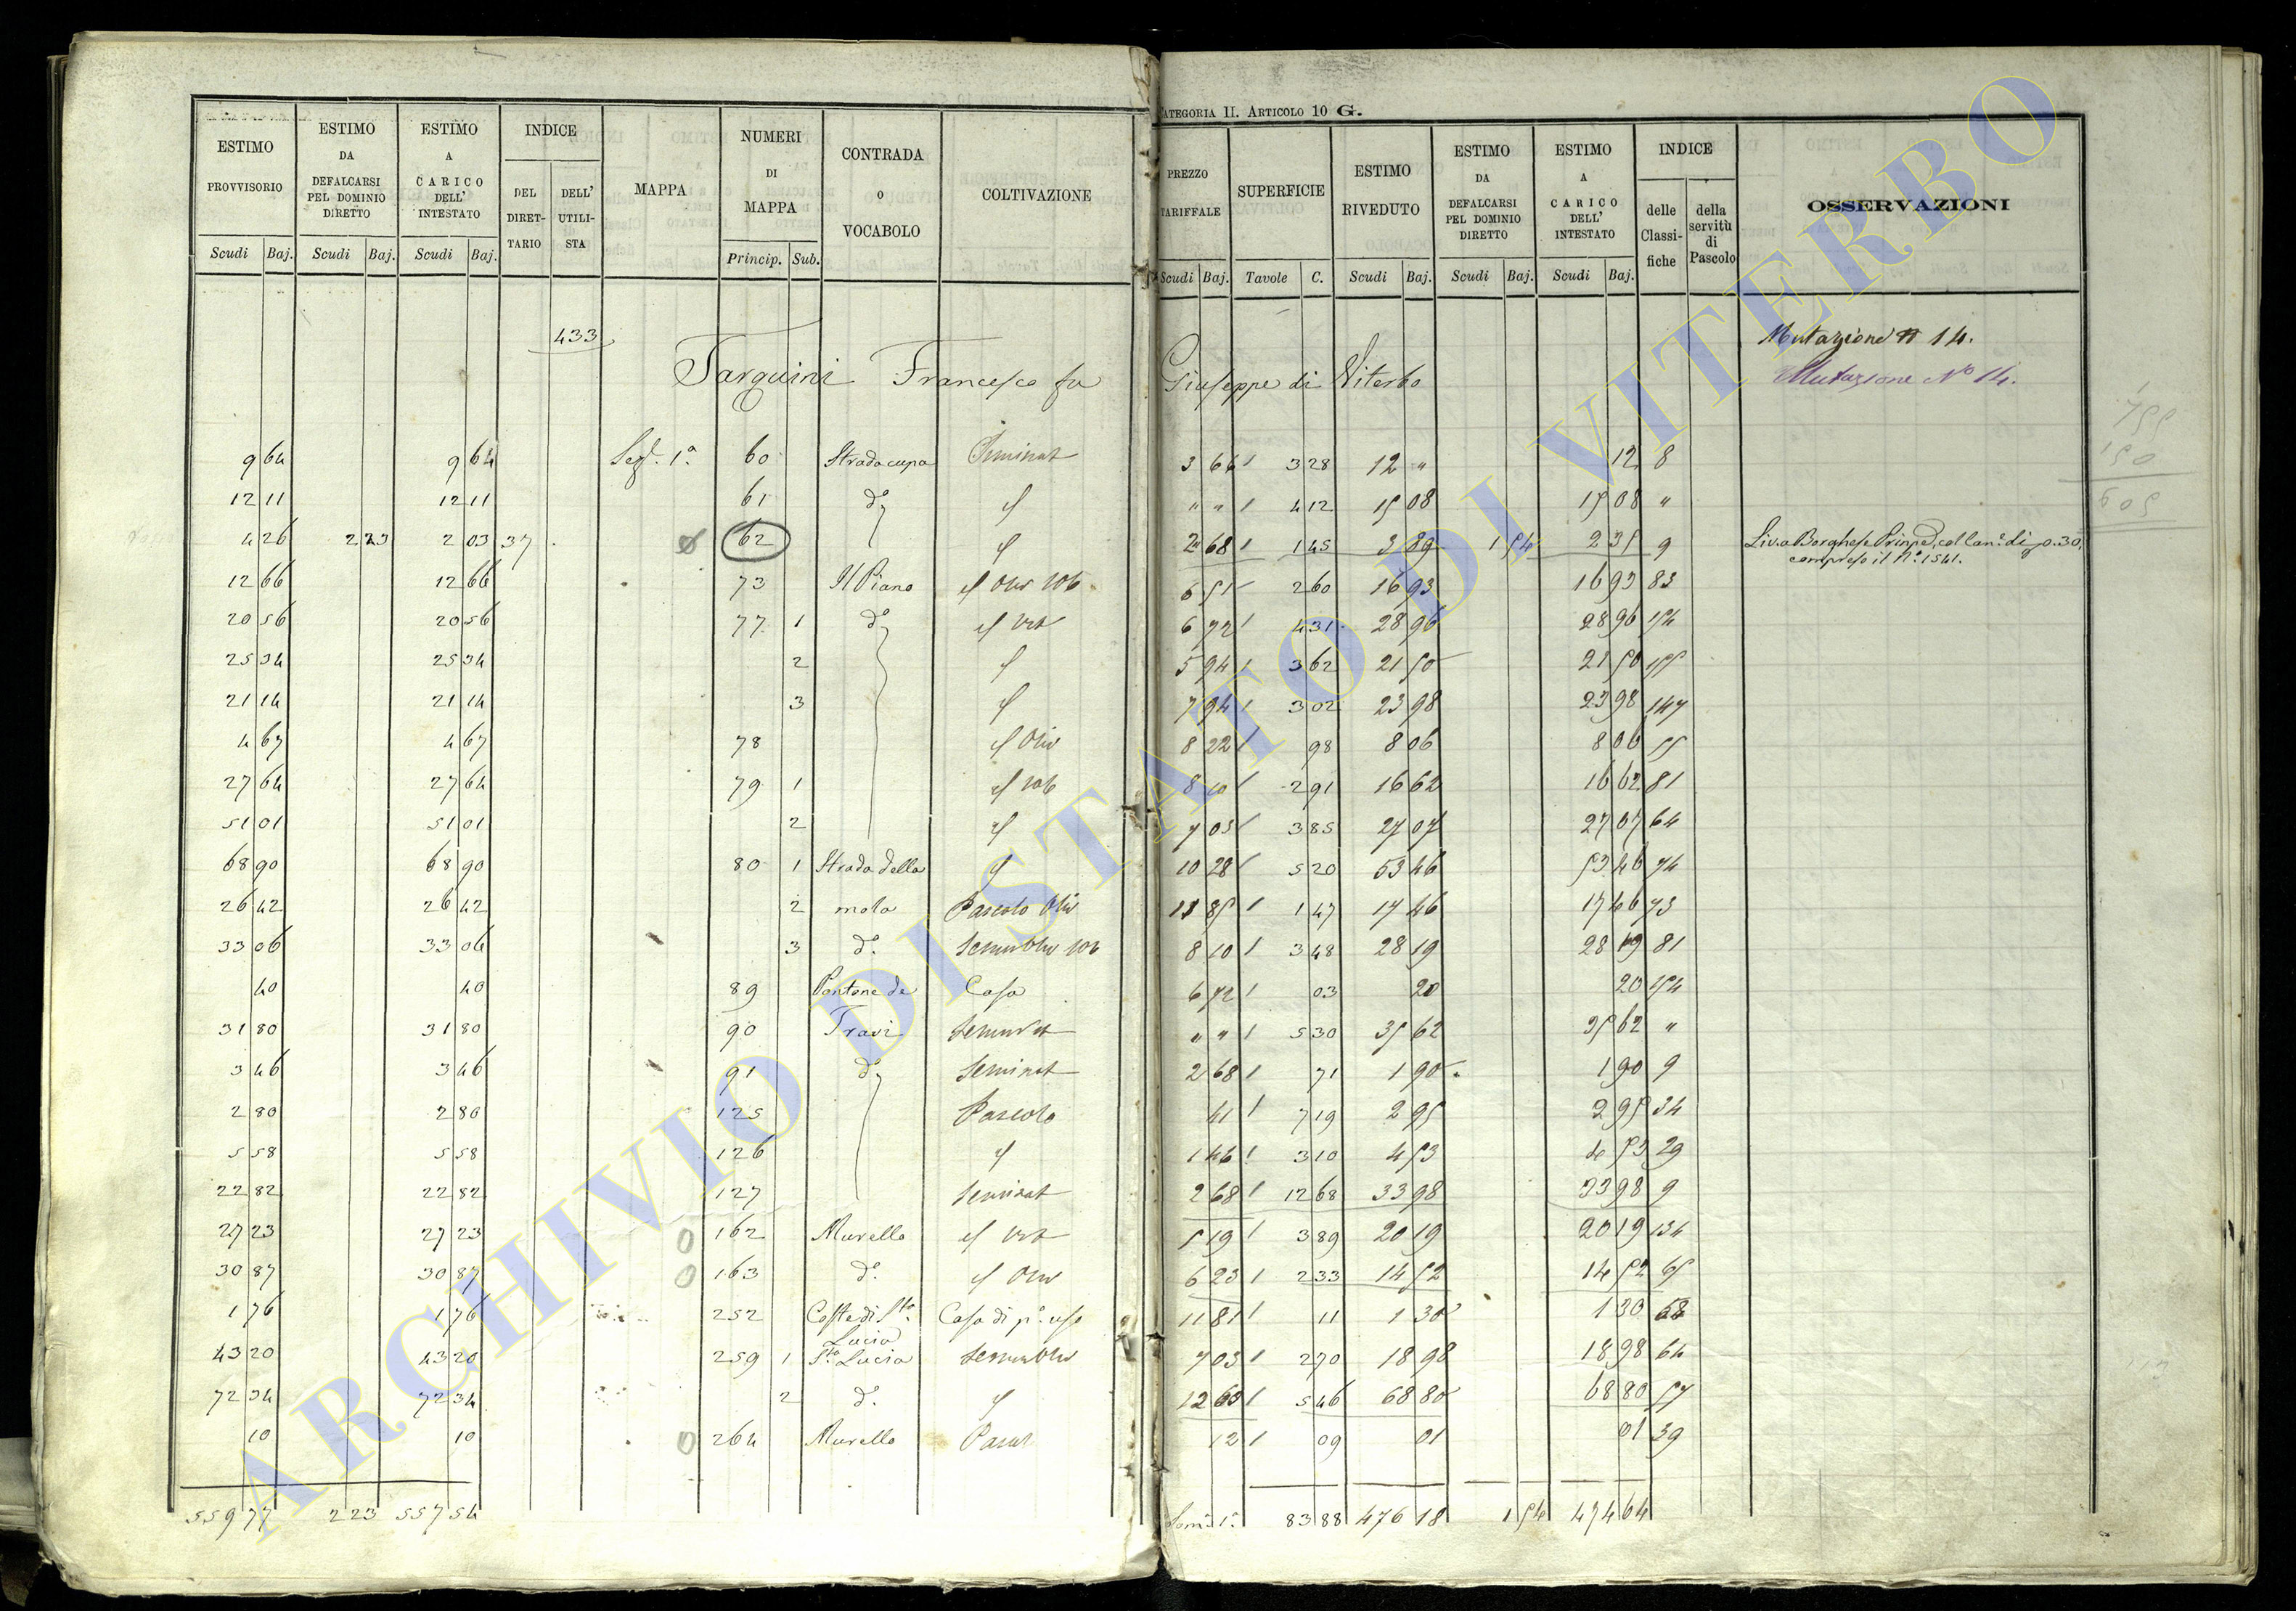 CATEGORIA II. ARTICOLO 10 G.
ESTIMO PROVVISORIO | ESTIMO DA DEFALCARSI PEL DOMINIO DIRETTO | ESTIMO A CARICO DELL' INTESTATO | INDICE DEL DIRETTARIO | DELL' UTILISTA | MAPPA | NUMERI DI MAPPA | CONTRADA O VOCABOLO | COLTIVAZIONE | PREZZO TARIFFALE | SUPERFICIE | ESTIMO RIVEDUTO | ESTIMO DA DEFALCARSI PEL DOMINIO DIRETTO | ESTIMO A CARICO DELL' INTESTATO | INDICE delle Classifiche | della servitù di Pascolo | OSSERVAZIONI
Scudi Baj. | Scudi Baj. | Scudi Baj. | Princip. Sub. | Scudi Baj. | Tavole C. | Scudi Baj. | Scudi Baj. | Scudi Baj.
433 Mutazione N 14.
Tarquini Francesco fu Giuseppe di Viterbo Mutazione N° 14.
9 64 | 9 64 | Sez. 1ª | 60 | Strada cupa | Seminat | 3 66 | 3 28 | 12 " | 12 | 8
12 11 | 12 11 | 61 | d° | " " | 4 12 | 15 08 | 15 08 | "
4 26 | 2 23 | 2 03 | 37 | 62 | 2 68 | 1 45 | 3 89 | 1 54 | 2 35 | 9 | Liv. a Borghese Princpe, col can. di 0.30,
compreso il N° 1541.
12 66 | 12 66 | 73 | Il Piano | Oliv | 6 51 | 2 60 | 16 93 | 16 93 | 83
20 56 | 20 56 | 77 | 1 | d° | Vit | 6 72 | 4 31 | 28 96 | 28 96 | 154
25 34 | 25 34 | 2 | 5 94 | 3 62 | 21 50 | 21 50 | 155
21 14 | 21 14 | 3 | 7 94 | 3 02 | 23 98 | 23 98 | 147
4 67 | 4 67 | 78 | Oliv | 8 22 | 98 | 8 06 | 8 06 | 55
27 64 | 27 64 | 79 | 1 | 8 10 | 2 91 | 16 62 | 16 62 | 81
51 01 | 51 01 | 2 | 7 03 | 3 85 | 27 07 | 27 07 | 64
68 90 | 68 90 | 80 | 1 | Strada della | 10 28 | 5 20 | 53 46 | 53 46 | 74
26 42 | 26 42 | 2 | mola | Pascolo Oliv | 1 47 | 17 46 | 17 46 | 73
33 06 | 33 06 | 3 | d° | 8 10 | 3 48 | 28 19 | 28 19 | 81
40 | 40 | 89 | Pontone de | Casa | 6 72 | 03 | 20 | 20 | 154
31 80 | 31 80 | 90 | Travi | " " | 5 30 | 35 62 | 35 62 | "
3 46 | 3 46 | 91 | d° | Seminat | 2 68 | 71 | 1 90 | 1 90 | 9
2 80 | 2 80 | 125 | Pascolo | 41 | 7 19 | 2 95 | 2 95 | 34
5 58 | 5 58 | 126 | 1 46 | 3 10 | 4 53 | 4 53 | 29
22 82 | 22 82 | 127 | Seminat | 2 68 | 12 68 | 33 98 | 33 98 | 9
27 23 | 27 23 | 162 | Murello | Vit | 5 19 | 3 89 | 20 19 | 20 19 | 134
30 87 | 30 87 | 163 | d° | Oliv | 6 23 | 2 33 | 14 52 | 14 52 | 65
1 76 | 1 76 | 252 | Coste di Sta | Casa di p° uso | 11 81 | 11 | 1 30 | 1 30 | 68
Lucia
43 20 | 43 20 | 259 | 1 | Sta Lucia | Seminoliv | 7 03 | 2 70 | 18 98 | 18 98 | 64
72 34 | 72 34 | 2 | d° | 12 60 | 5 46 | 68 80 | 68 80 | 57
10 | 10 | 264 | Murello | Pascol | 12 | 09 | 01 | 01 | 39
559 77 | 2 23 | 557 54 | Som. 1ª | 83 88 | 476 18 | 1 54 | 474 64
ARCHIVIO DI STATO DI VITERBO